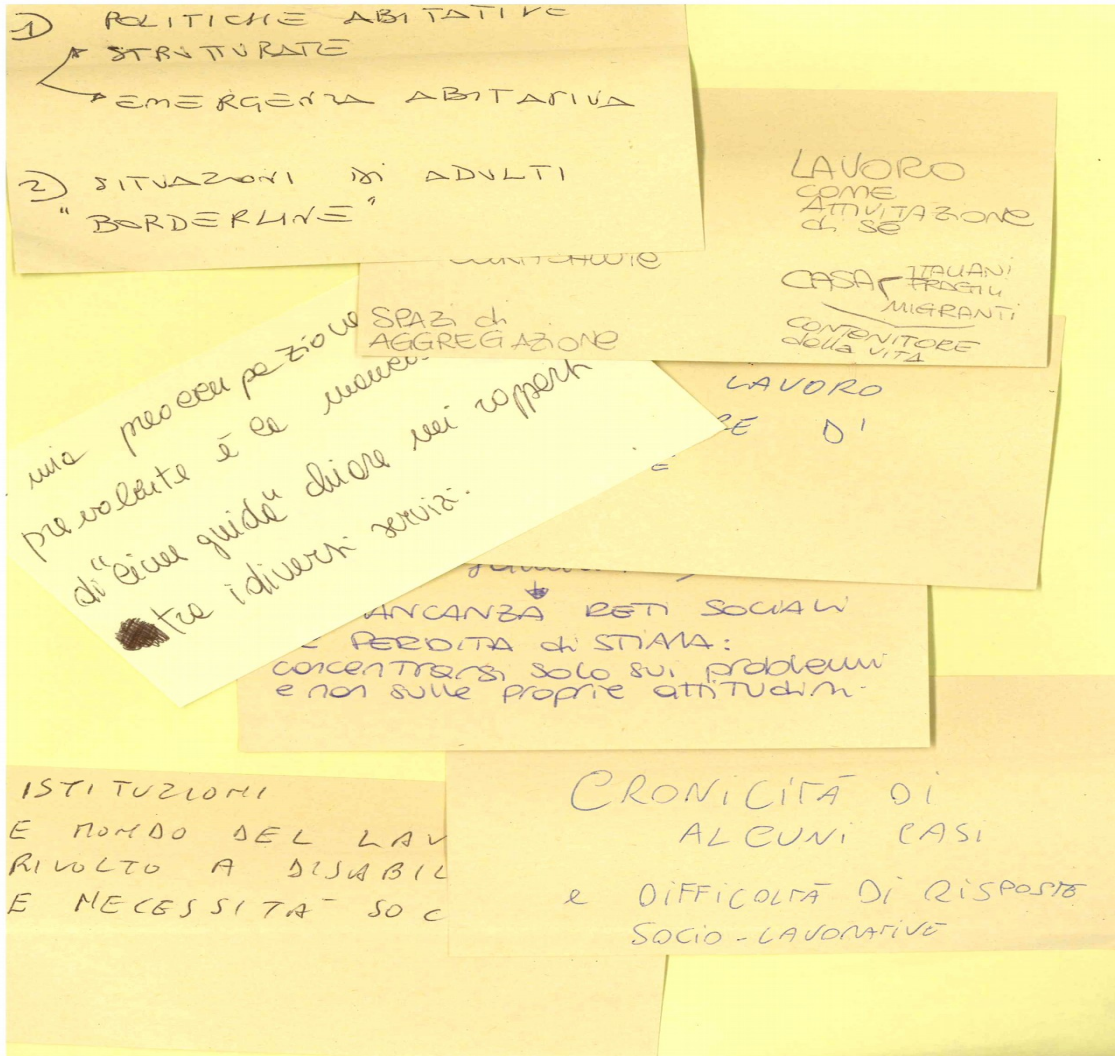 1) POLITICHE ABITATIVE
STRUTTURATE
EMERGENZA ABITATIVA
2) SITUAZIONI DI ADULTI
"BORDERLINE"
LAVORO
COME
ATTIVITAZIONE
di SE
CASA ITALIANI
FRAGILI
MIGRANTI
CONTENITORE
della VITA
SPAZI di
AGGREGAZIONE
LAVORO
RE DI
E
una preoccupazione
prevalente è la
di "linee guida" chiare nei rapporti
tra i diversi servizi.
MANCANZA RETI SOCIALI
E PERDITA di STIMA:
concentrarsi solo sui problemi
e non sulle proprie attitudini.
ISTITUZIONI
E MONDO DEL LAV
RIVOLTO A DISABIL
E NECESSITA' SOC
CRONICITÀ DI
ALCUNI CASI
e DIFFICOLTÀ DI RISPOSTE
SOCIO-LAVORATIVE